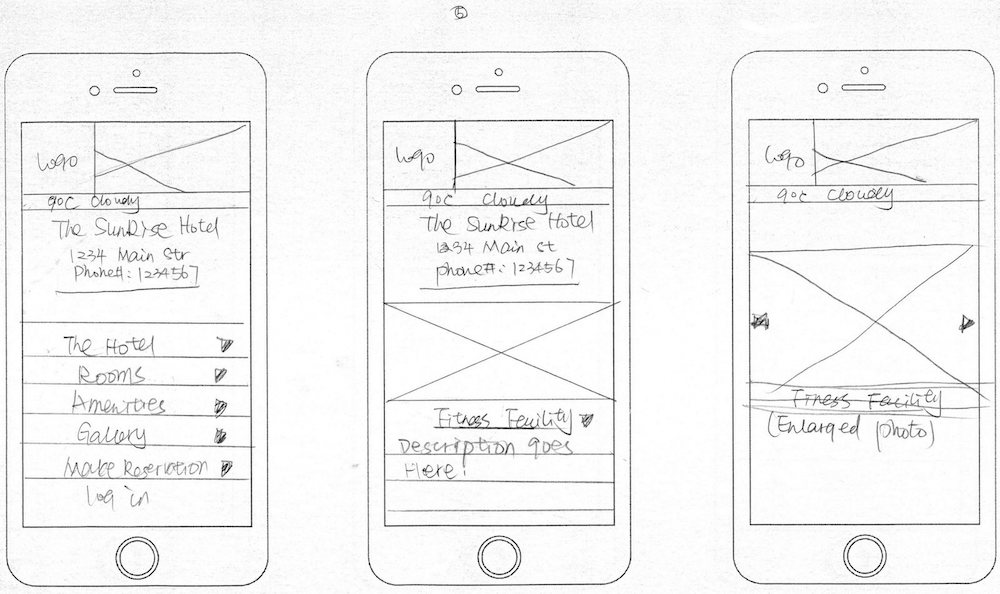 5
Logo
90c Cloudy
The SunRise Hotel
1234 Main Str
Phone#: 1234567
The Hotel
Rooms
Amenities
Gallery
Make Reservation
log in
Logo
90c Cloudy
The SunRise Hotel
1234 Main St
phone#: 1234567
Fitness Fecility
Description goes
Here!
Logo
90c Cloudy
Fitness Fecility
(Enlarged photo)